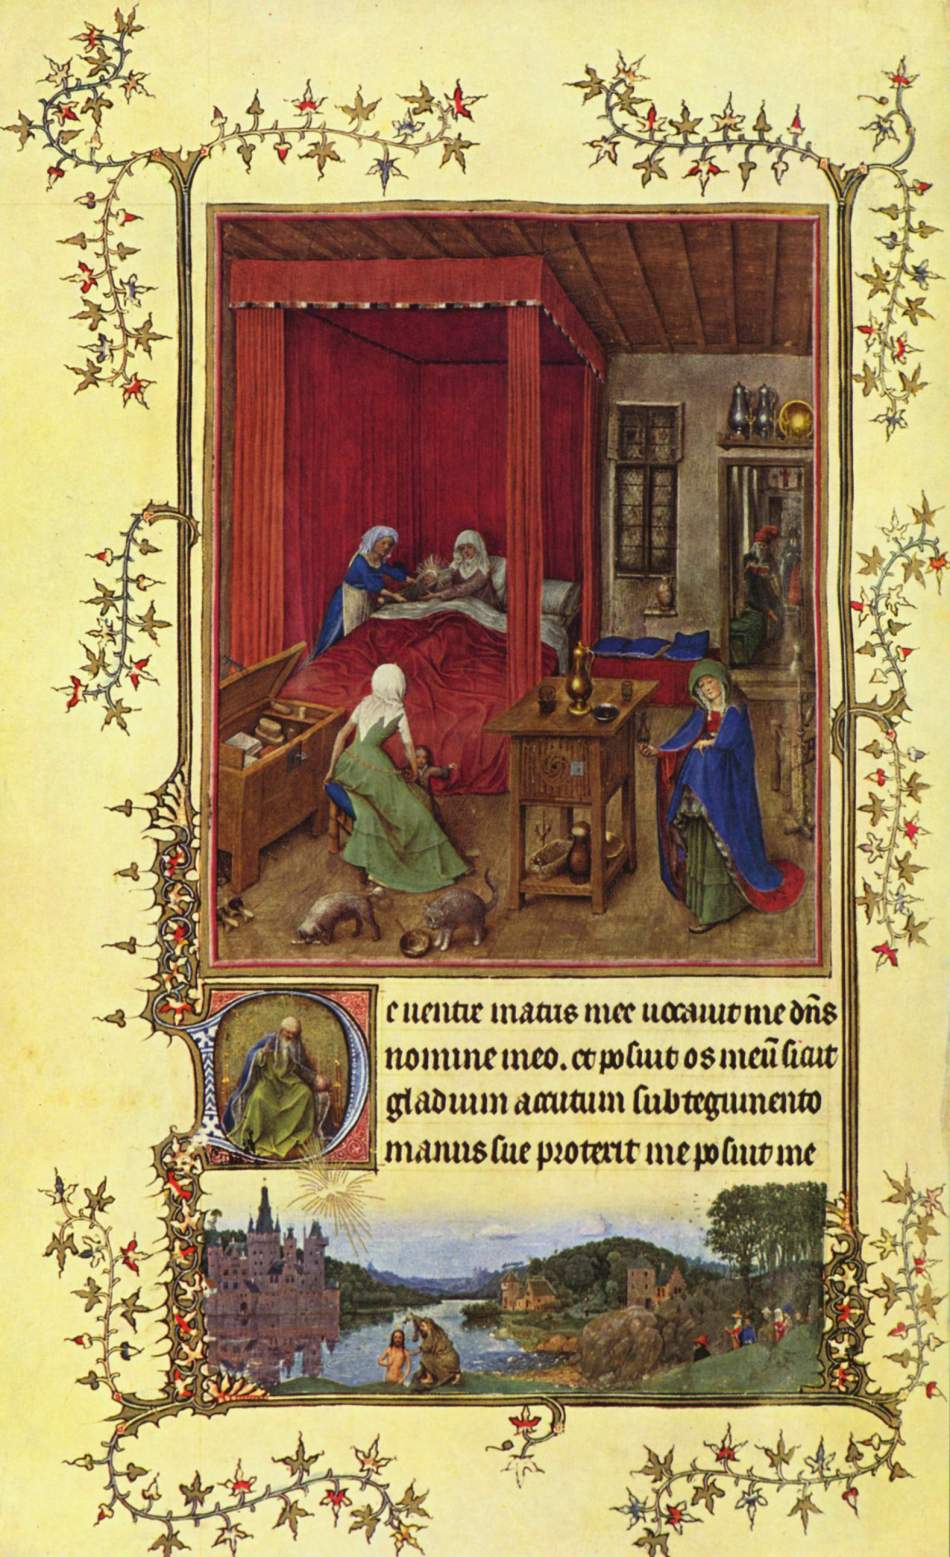 De uentre matris mee uocauit me dñs
nomine meo. et posuit os meū sicut
gladium accutum sub tegumento
manus sue protexit me posuit me